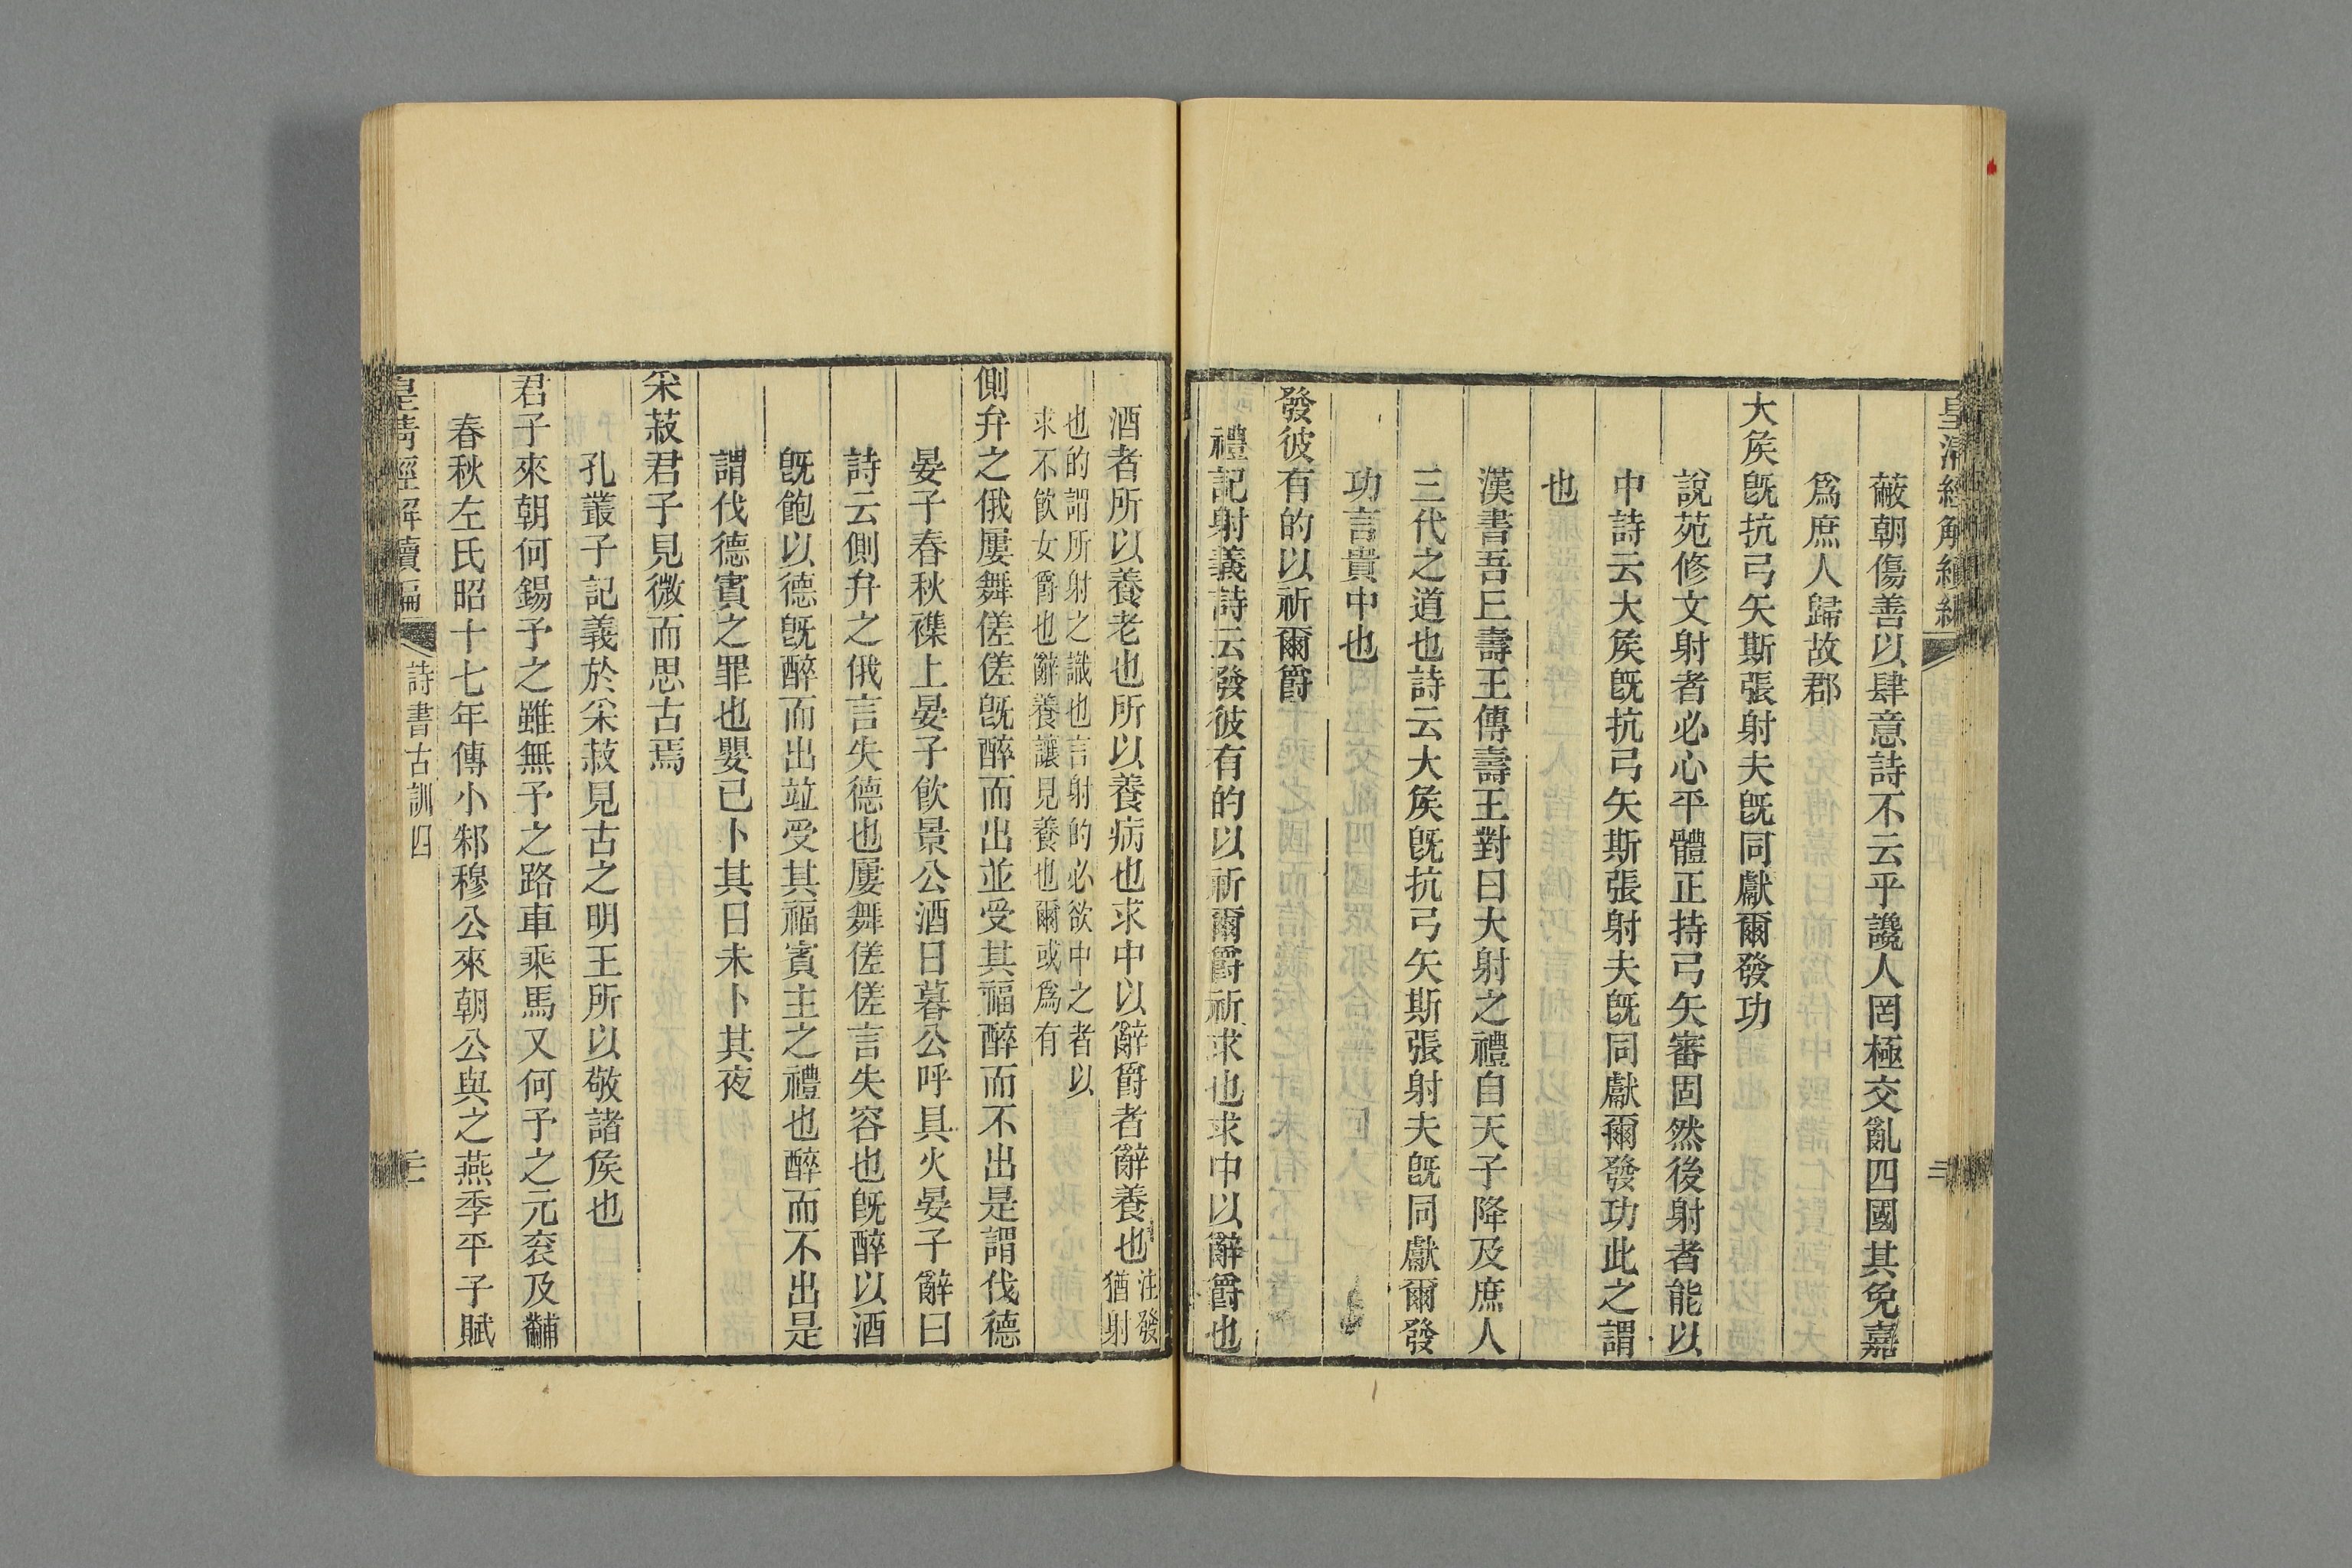 皇清經解續編
蔽朝傷善以肆意詩不云乎讒人罔極交亂四國其免嘉
爲庶人歸故郡
大矦旣抗弓矢斯張射夫旣同獻爾發功
說苑修文射者必心平體正持弓矢審固然後射者能以
中詩云大矦旣抗弓矢斯張射夫旣同獻爾發功此之謂
也
漢書吾丘壽王傳壽王對曰大射之禮自天子降及庶人
三代之道也詩云大矦旣抗弓矢斯張射夫旣同獻爾發
功言貴中也
發彼有的以祈爾爵
禮記射義詩云發彼有的以祈爾爵祈求也求中以辭爵也
酒者所以養老也所以養病也求中以辭爵者辭養也
注發
猶射
也的謂所射之識也言射的必欲中之者以
求不飮女爵也辭養讓見養也爾或爲有
側弁之俄屢舞傞傞旣醉而出並受其福醉而不出是謂伐德
晏子春秋襍上晏子飮景公酒日暮公呼具火晏子辭曰
詩云側弁之俄言失德也屢舞傞傞言失容也旣醉以酒
旣飽以德旣醉而出竝受其福賓主之禮也醉而不出是
謂伐德賓之罪也嬰已卜其日未卜其夜
采菽君子見微而思古焉
孔叢子記義於采菽見古之明王所以敬諸矦也
君子來朝何錫予之雖無予之路車乘馬又何予之元袞及黼
春秋左氏昭十七年傳小邾穆公來朝公與之燕季平子賦
皇清經解續編
詩書古訓四